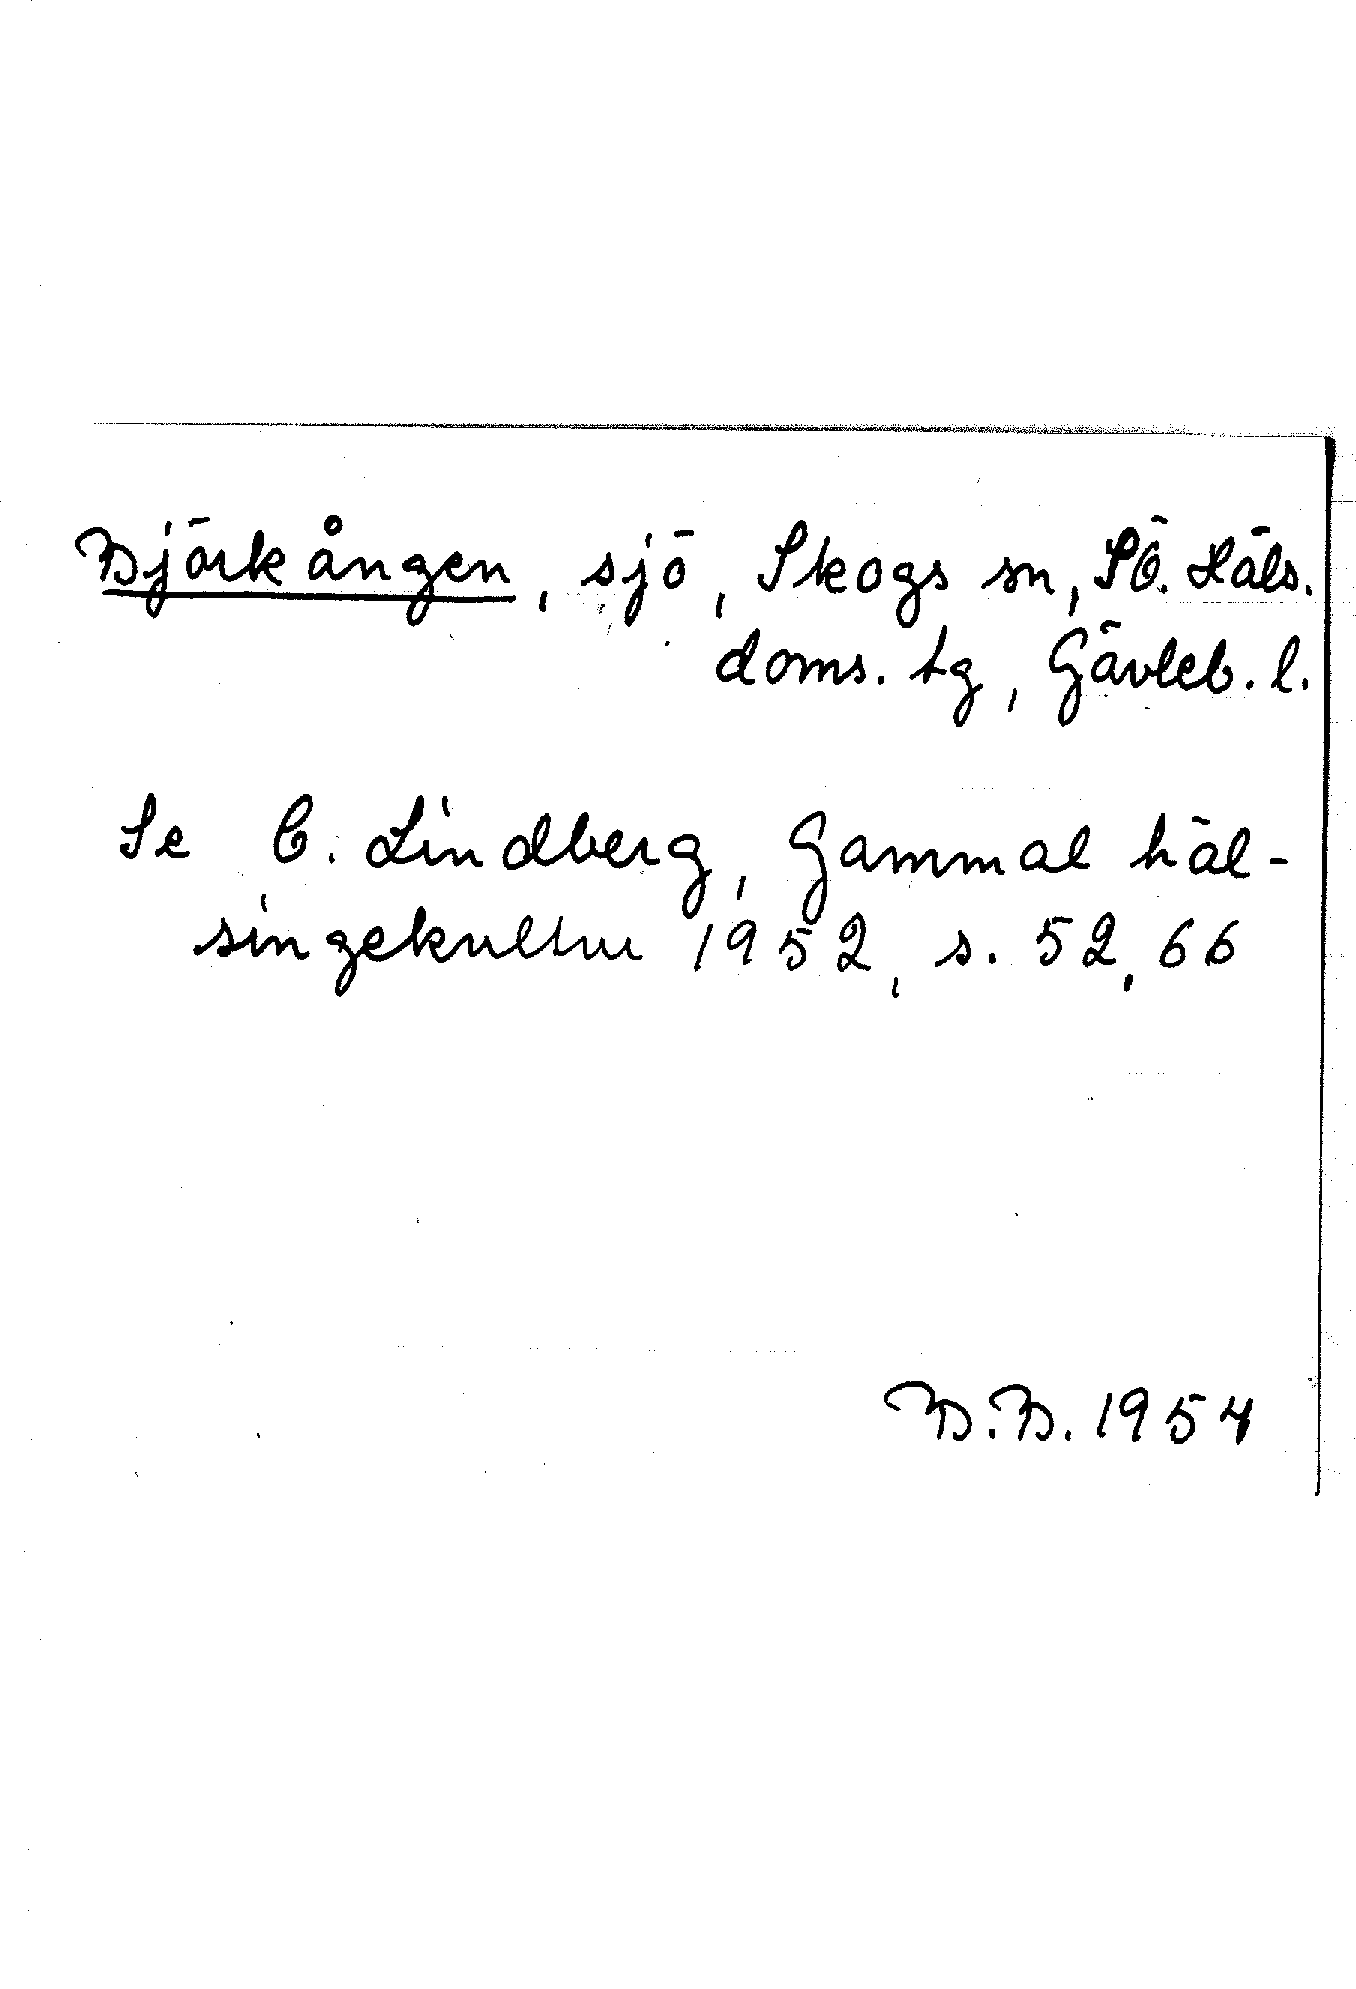 Björkången, sjö, Skogs sn, SÖ. Häls.
doms. tg, Gävleb. l.
Se C. Lindberg, Gammal häl-
singekultur 1952, s. 52, 66
B.B. 1954